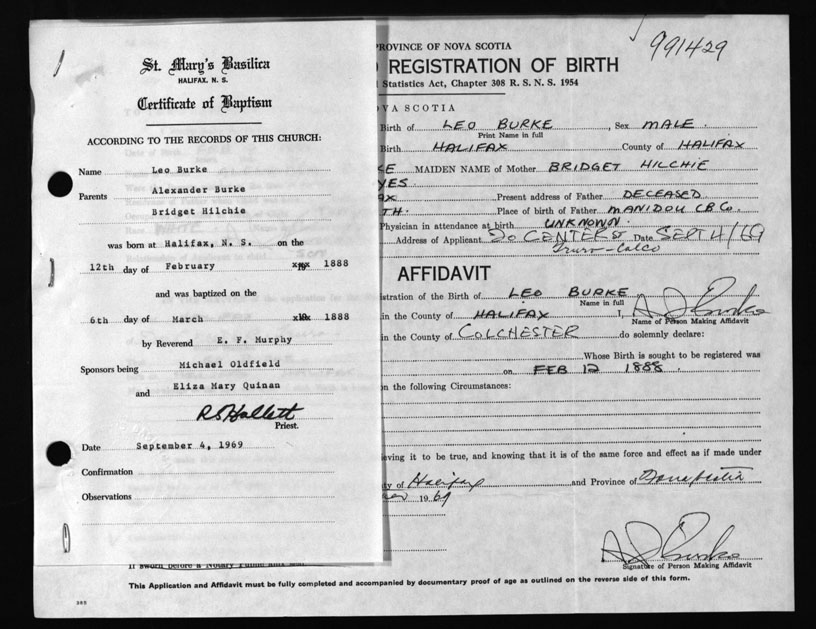 St. Mary's Basilica
HALIFAX, N. S.
Certificate of Baptism
ACCORDING TO THE RECORDS OF THIS CHURCH:
Name Leo Burke
Parents Alexander Burke
Bridget Hilchie
was born at Halifax, N. S. on the
12th day of February 1888
and was baptized on the
6th day of March 1888
by Reverend E. F. Murphy
Sponsors being Michael Oldfield
and Eliza Mary Quinan
Priest.
Date September 4, 1969
Confirmation
Observations
PROVINCE OF NOVA SCOTIA
991429
REGISTRATION OF BIRTH
Statistics Act, Chapter 308 R. S. N. S. 1954
VA SCOTIA
Birth of LEO BURKE, Sex MALE.
Print Name in full
Birth HALIFAX County of HALIFAX
KE MAIDEN NAME of Mother BRIDGET HILCHIE
YES
AX Present address of Father DECEASED
TH. Place of birth of Father MANIDOU C.B. Co.
Physician in attendance at birth UNKNOWN.
Address of Applicant CENTER ST Date SEPT 4/69
Truro - Colco
AFFIDAVIT
istration of the Birth of LEO BURKE
Name in full
in the County of HALIFAX I,
Name of Person Making Affidavit
in the County of COLCHESTER do solemnly declare:
Whose Birth is sought to be registered was
on FEB 12 1888.
on the following Circumstances:
eving it to be true, and knowing that it is of the same force and effect as if made under
ty of Halifax and Province of Nova Scotia
1969
If sworn before a Notary Public affix seal.
Signature of Person Making Affidavit
This Application and Affidavit must be fully completed and accompanied by documentary proof of age as outlined on the reverse side of this form.